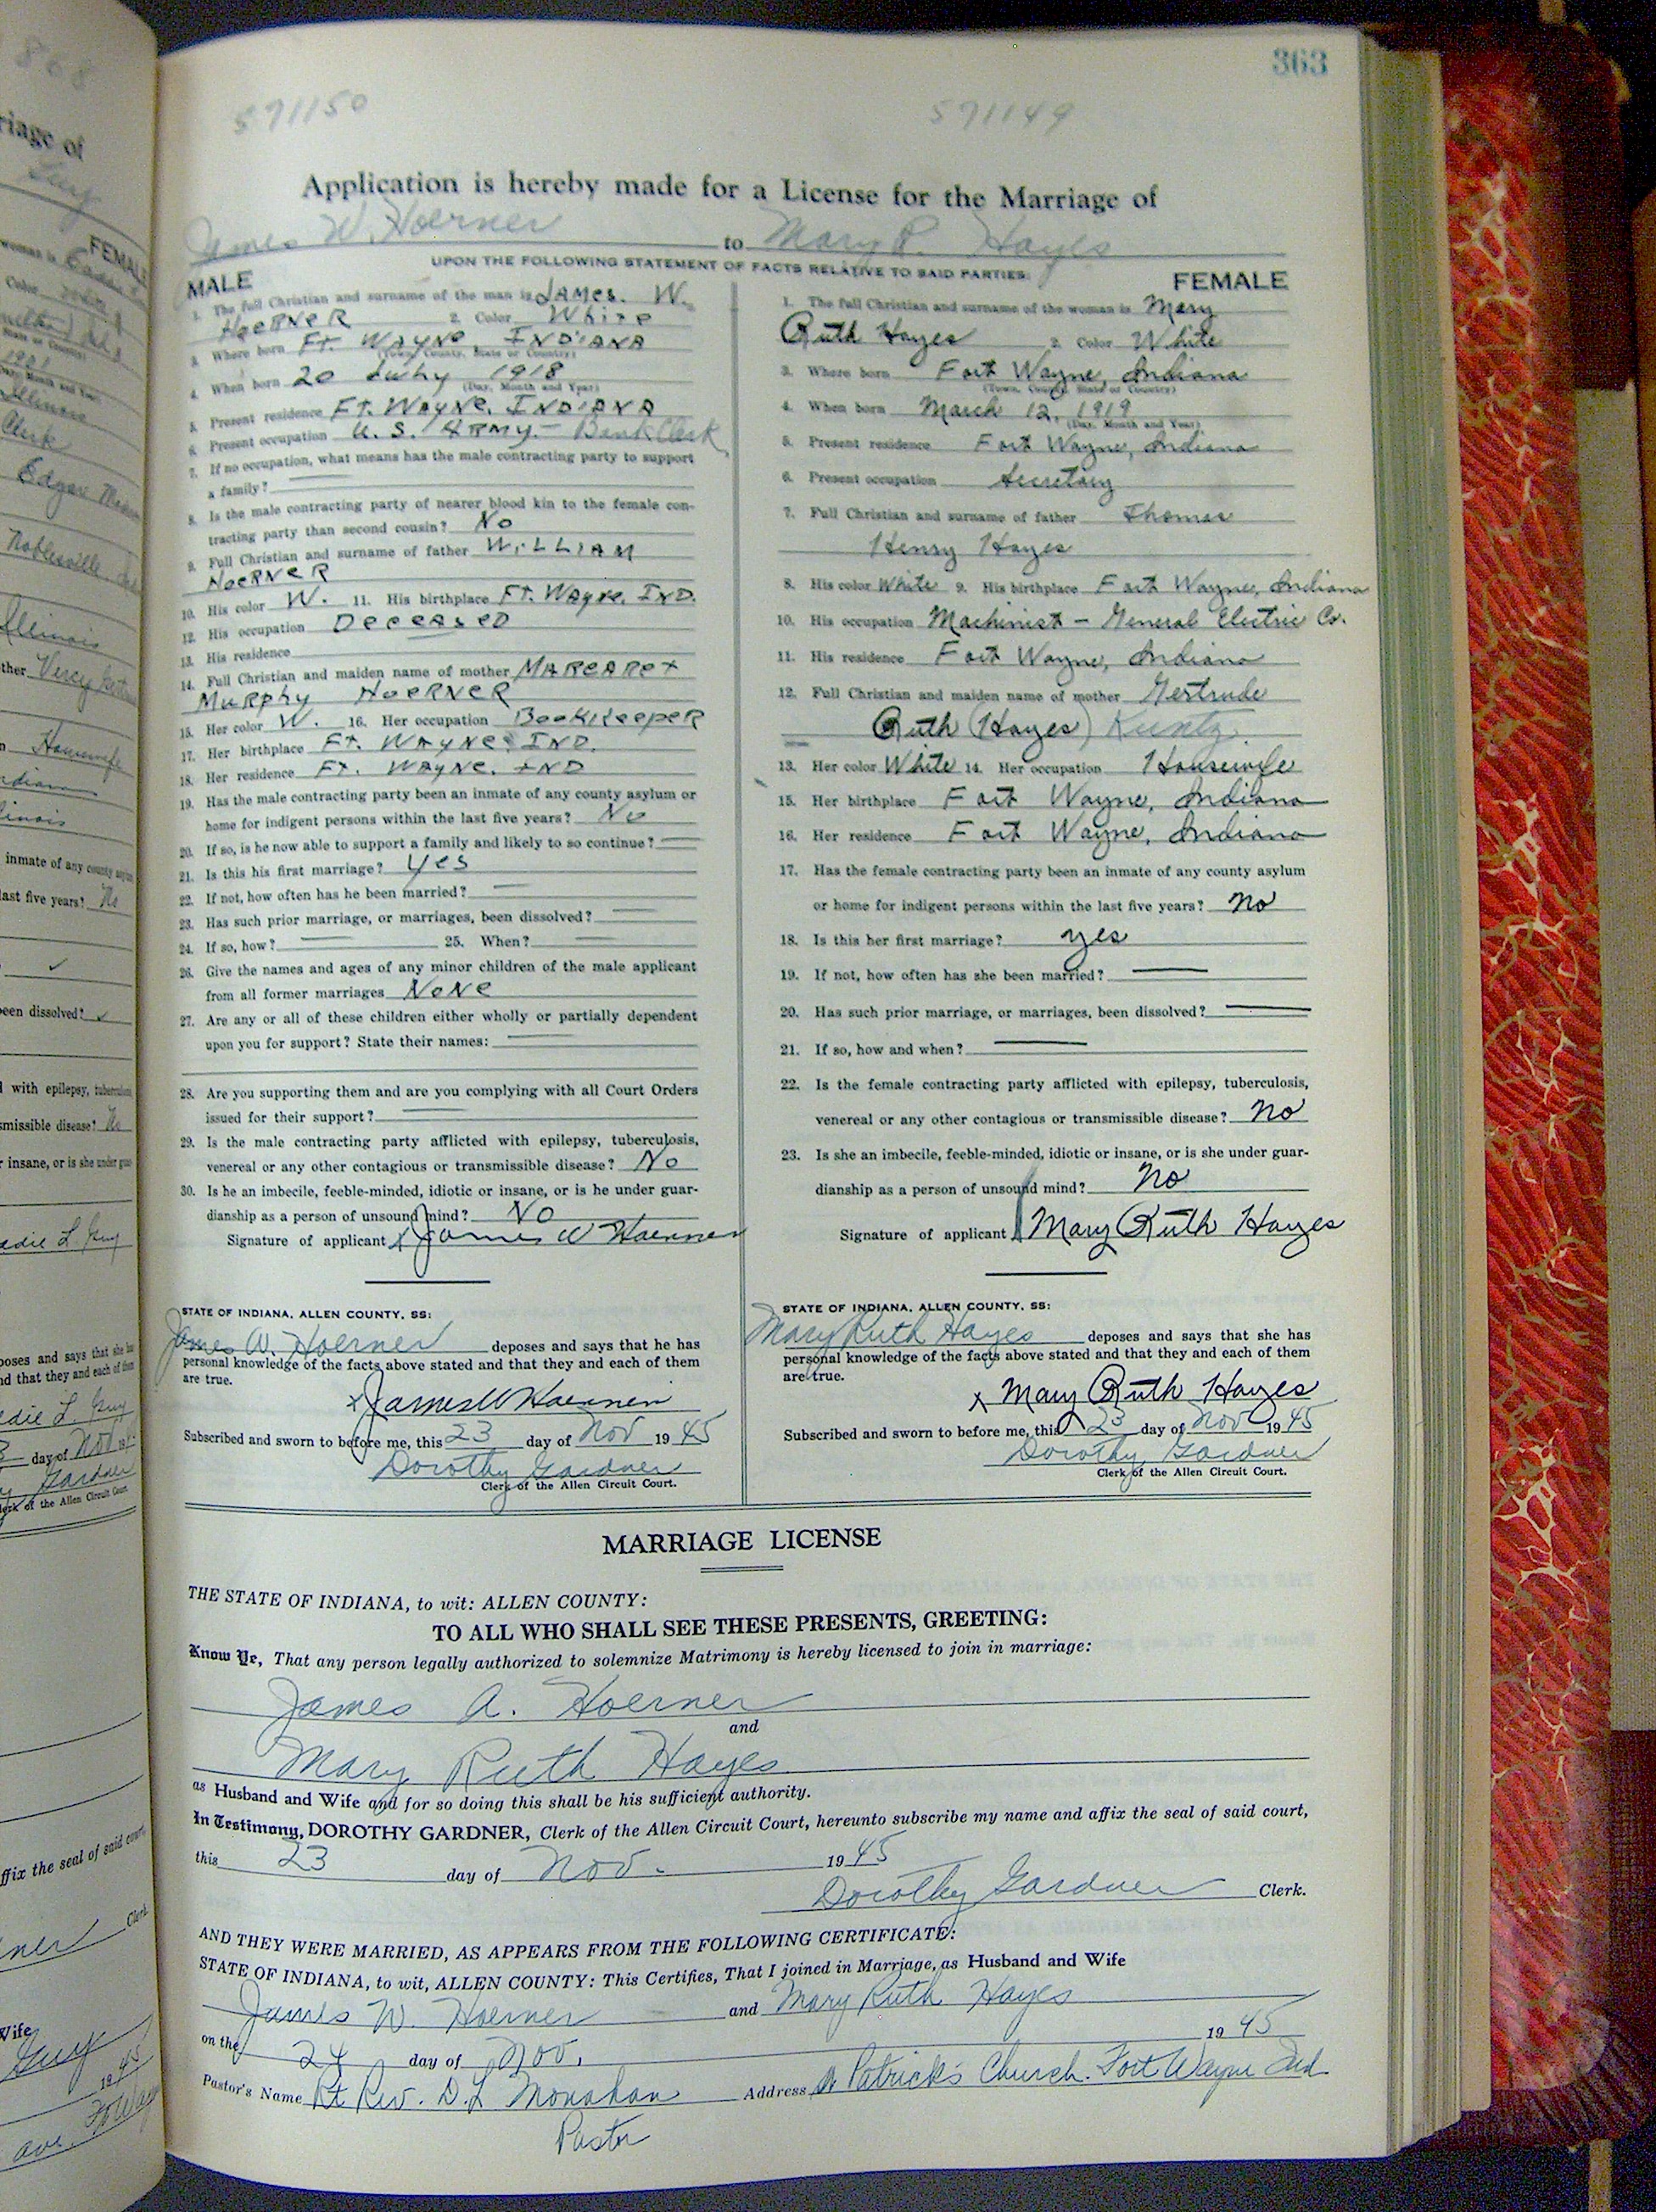 363
571150 571149
Application is hereby made for a License for the Marriage of
James W. Hoerner to Mary R. Hayes
UPON THE FOLLOWING STATEMENT OF FACTS RELATIVE TO SAID PARTIES:
MALE
1. The full Christian and surname of the man is JAMES. W.
HOERNER 2. Color White
3. Where born FT. WAYNE, INDIANA
(Town, County, State or Country)
4. When born 20 July 1918
(Day, Month and Year)
5. Present residence FT. WAYNE, INDIANA
6. Present occupation U.S. ARMY - Bank Clerk
7. If no occupation, what means has the male contracting party to support
a family?
8. Is the male contracting party of nearer blood kin to the female con-
tracting party than second cousin? No
9. Full Christian and surname of father WILLIAM
HOERNER
10. His color W. 11. His birthplace FT. WAYNE, IND.
12. His occupation DECEASED
13. His residence
14. Full Christian and maiden name of mother MARGARET
MURPHY HOERNER
15. Her color W. 16. Her occupation BOOKKEEPER
17. Her birthplace FT. WAYNE, IND.
18. Her residence FT. WAYNE, IND
19. Has the male contracting party been an inmate of any county asylum or
home for indigent persons within the last five years? No
20. If so, is he now able to support a family and likely to so continue?
21. Is this his first marriage? yes
22. If not, how often has he been married?
23. Has such prior marriage, or marriages, been dissolved?
24. If so, how? 25. When?
26. Give the names and ages of any minor children of the male applicant
from all former marriages NONE
27. Are any or all of these children either wholly or partially dependent
upon you for support? State their names:
28. Are you supporting them and are you complying with all Court Orders
issued for their support?
29. Is the male contracting party afflicted with epilepsy, tuberculosis,
venereal or any other contagious or transmissible disease? No
30. Is he an imbecile, feeble-minded, idiotic or insane, or is he under guar-
dianship as a person of unsound mind? NO
Signature of applicant x James W Hoerner
STATE OF INDIANA, ALLEN COUNTY, SS:
James W. Hoerner deposes and says that he has
personal knowledge of the facts above stated and that they and each of them
are true.
x James W Hoerner
Subscribed and sworn to before me, this 23 day of Nov 19 45
Dorothy Gardner
Clerk of the Allen Circuit Court.
FEMALE
1. The full Christian and surname of the woman is Mary
Ruth Hayes 2. Color White
3. Where born Fort Wayne, Indiana
(Town, County, State or Country)
4. When born March 12, 1919
(Day, Month and Year)
5. Present residence Fort Wayne, Indiana
6. Present occupation Secretary
7. Full Christian and surname of father Thomas
Henry Hayes
8. His color White 9. His birthplace Fort Wayne, Indiana
10. His occupation Machinist - General Electric Co.
11. His residence Fort Wayne, Indiana
12. Full Christian and maiden name of mother Gertrude
Ruth (Hayes) Kuntz
13. Her color White 14. Her occupation Housewife
15. Her birthplace Fort Wayne, Indiana
16. Her residence Fort Wayne, Indiana
17. Has the female contracting party been an inmate of any county asylum
or home for indigent persons within the last five years? no
18. Is this her first marriage? yes
19. If not, how often has she been married?
20. Has such prior marriage, or marriages, been dissolved?
21. If so, how and when?
22. Is the female contracting party afflicted with epilepsy, tuberculosis,
venereal or any other contagious or transmissible disease? no
23. Is she an imbecile, feeble-minded, idiotic or insane, or is she under guar-
dianship as a person of unsound mind? no
Signature of applicant Mary Ruth Hayes
STATE OF INDIANA, ALLEN COUNTY, SS:
Mary Ruth Hayes deposes and says that she has
personal knowledge of the facts above stated and that they and each of them
are true.
x Mary Ruth Hayes
Subscribed and sworn to before me, this 23 day of Nov 19 45
Dorothy Gardner
Clerk of the Allen Circuit Court.
MARRIAGE LICENSE
THE STATE OF INDIANA, to wit: ALLEN COUNTY:
TO ALL WHO SHALL SEE THESE PRESENTS, GREETING:
Know Ye, That any person legally authorized to solemnize Matrimony is hereby licensed to join in marriage:
James A. Hoerner
and
Mary Ruth Hayes
as Husband and Wife and for so doing this shall be his sufficient authority.
In Testimony, DOROTHY GARDNER, Clerk of the Allen Circuit Court, hereunto subscribe my name and affix the seal of said court,
this 23 day of Nov. 19 45
Dorothy Gardner Clerk.
AND THEY WERE MARRIED, AS APPEARS FROM THE FOLLOWING CERTIFICATE:
STATE OF INDIANA, to wit, ALLEN COUNTY: This Certifies, That I joined in Marriage, as Husband and Wife
James W. Hoerner and Mary Ruth Hayes
on the 24 day of Nov. 19 45
Pastor's Name Rt Rev. D. L. Monahan Address St Patrick's Church. Fort Wayne Ind
Pastor